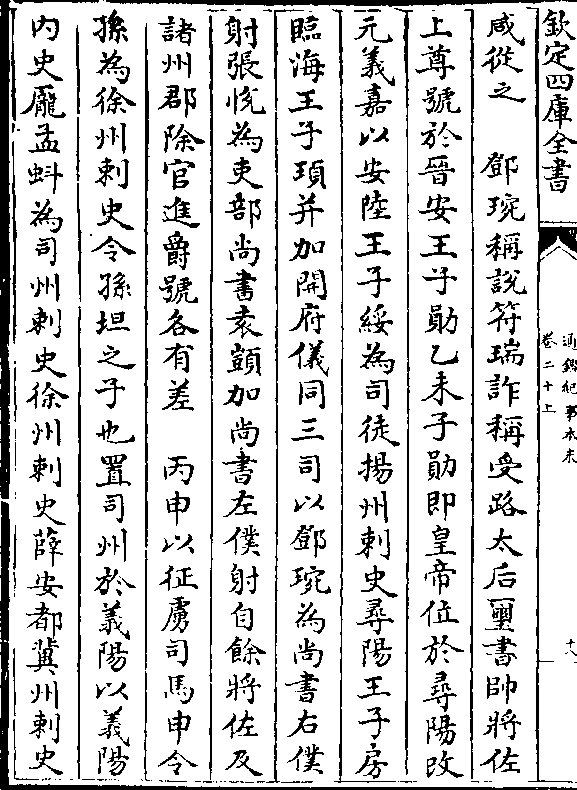 欽定四庫全書
通鑑紀事本末
卷二十上
十八
咸從之　鄧琬稱說符瑞詐稱受路太后璽書帥將佐
上尊號於晉安王子勛乙未子勛即皇帝位於尋陽改
元義嘉以安陸王子綏為司徒揚州刺史尋陽王子房
臨海王子頊并加開府儀同三司以鄧琬為尚書右僕
射張悅為吏部尚書袁顗加尚書左僕射自餘將佐及
諸州郡除官進爵號各有差　丙申以征虜司馬申令
孫為徐州刺史令孫坦之子也置司州於義陽以義陽
内史龐孟蚪為司州刺史徐州刺史薛安都冀州刺史